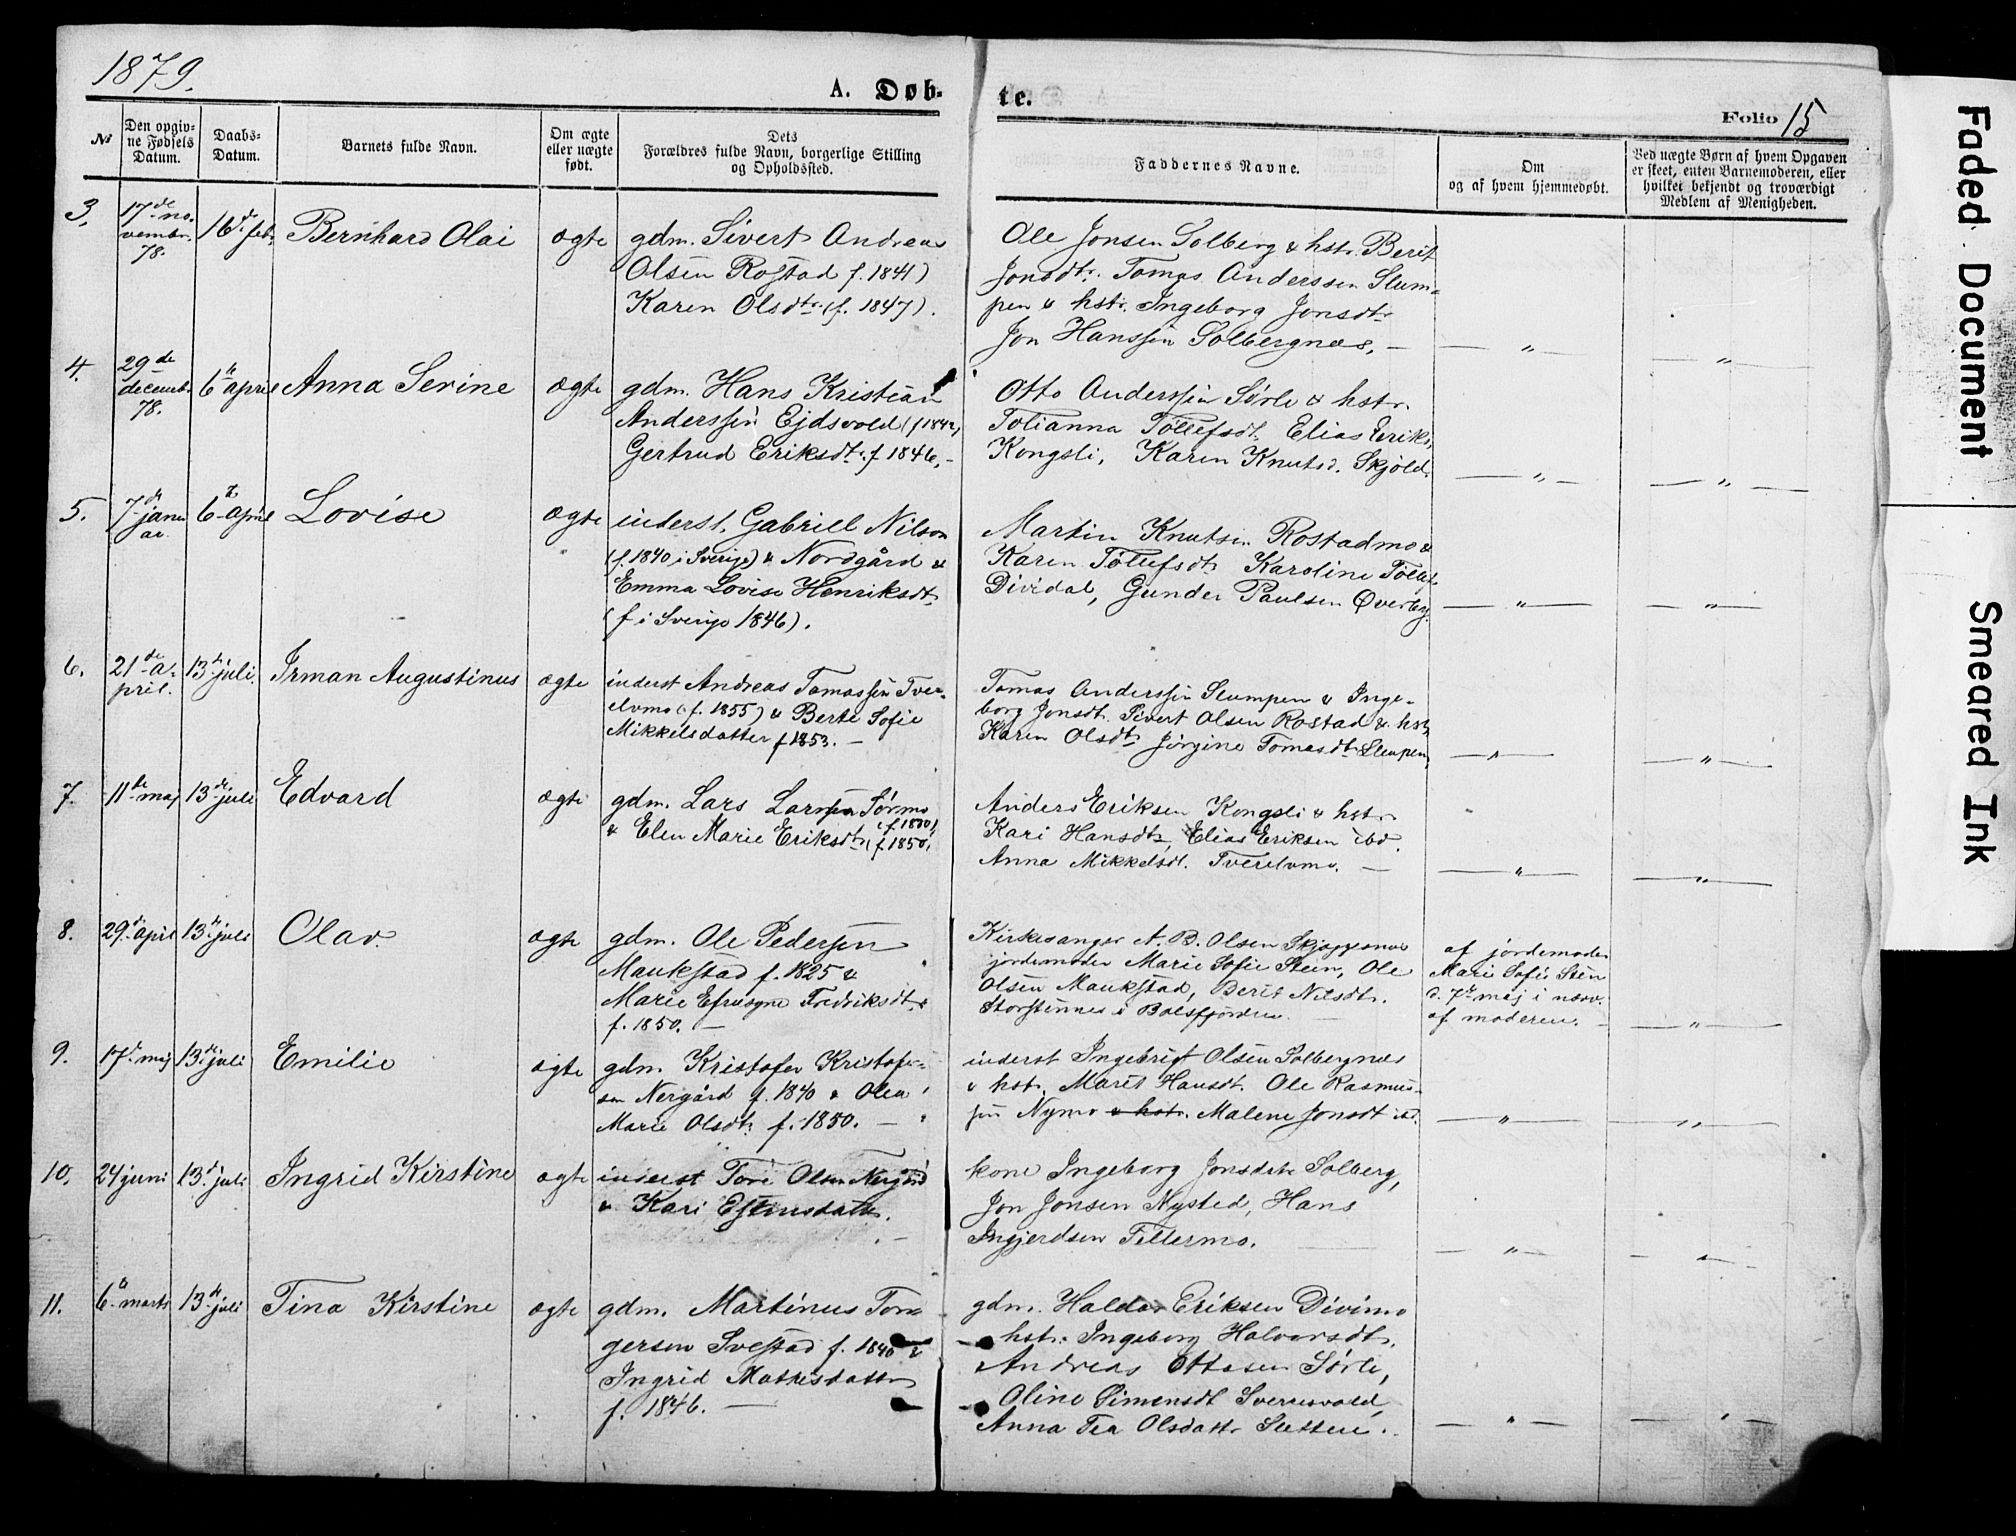 1879.
A. Døb-
te.
Folio 15
№
Den opgiv-
ne Fødsels
Datum.
Daabs-
Datum.
Barnets fulde Navn.
Om ægte
eller uægte
født.
Dets
Forældres fulde Navn, borgerlige Stilling
og Opholdssted.
Faddernes Navne.
Om
og af hvem hjemmedøbt.
Ved uægte Børn af hvem Opgaven
er skeet, enten Barnemoderen, eller
hvilket bekjendt og troværdigt
Medlem af Menigheden.
3.
17de no-
vembr.
78.
16d febr
Bernhard Olai
ægte
gdm. Sivert Andreas
Olsen Rostad f. 1841)
Karen Olsdtr. (f. 1847).
Ole Jonsen Solberg & hstr. Berit
Jonsdtr. Tomas Anderssen Slum-
pen & hstr. Ingeborg Jonsdtr
Jon Hanssen Solbergnæs. —
— " —
— " —
4.
29de
decemb.
78.
6te april
Anna Serine
ægte
gdm. Hans Kristian
Anderssen Ejdsvold (f 1842,
Gertrud Eriksdtr. f 1846, —
Otto Anderssen Sørli & hstr.
Tolianna Tollefsdt. Elias Eriks.
Kongsli, Karen Knutsd. Skjold.
— " —
— " —
5.
7de janu
ar.
6te april
Lovise
ægte
inderst. Gabriel Nilson
(f. 1840 i Sverige) & Nordgård &
Emma Lovise Henriksdt.
(f i Sverige 1846).
Martin Knutsen Rostadmo &
Karen Tollefsdt. Karoline Tollef
Dividal, Gunder Paulsen Øverby.
— " —
— " —
6.
21de a-
pril.
13de juli
Irman Augustinus
ægte
inderst Andreas Tomassen Tver-
elvmo (f. 1855) & Berte Sofie
Mikkelsdatter f 1853. —
Tomas Anderssen Slumpen & Inge-
borg Jonsdt. Sivert Olsen Rostad & hstr
Karen Olsdtr Jørgine Tomasdtr Slumpen,
— " —
— " —
7.
11de maj
13de juli
Edvard
ægte
gdm. Lars Larssen Sørmo
& Elen Marie Eriksdtr (f 1850.
Anders Eriksen Kongsli & hstr
Kari Hansdtr, Elias Eriksen ibd.
Anna Mikkelsdt. Tverelvmo. —
— " —
— " —
8.
29d april
13de juli
Olav
ægte
gdm. Ole Pedersen
Maukstad f. 1825 &
Marie Efrosyne Fredriksdt.
f. 1850. —
Kirkesanger A. B. Olsen Skjæggesnes
jordemoder Marie Sofie Steen, Ole
Olsen Maukstad, Berit Nilsdtr.
Storstennes i Balsfjorden
af jordemoder
Marie Sofie Sten
d. 7de maj i nærv.
af moderen. —
— " —
9.
17d maj
13de juli
Emilie
ægte
gdm. Kristofer Kristofer-
sen Nergård f. 1840 & Olea
Marie Olsdtr. f. 1850. —
inderst Ingebrigt Olsen Solbergnæs
& hstr. Marit Hansdt. Ole Rasmus-
sen Nymo & hstr. Malene Jonsdt ibd.
— " —
— " —
10.
24 juni
13d juli
Ingrid Kirstine
ægte
inderst Tore Olsen Nergård
& Kari Estensdatter.
kone Ingeborg Jonsdatr Solberg,
Jon Jonsen Nysted, Hans
Ingjerdsen Fillermo.
— " —
— " —
11.
6te marts
13de juli
Tina Kirstine
ægte
gdm. Martinus Tor-
gersen Svestad f. 1840 &
Ingrid Mathisdatter
f. 1846. —
gdm. Haldor Eriksen Divimo
hstr. Ingeborg Halvorsdt.
Andreas Ottosen Sørli,
Oline Simensdt Sverresvold,
Anna Tea Olsdattr Sletten.
— " —
— " —
Faded Document
Smeared Ink